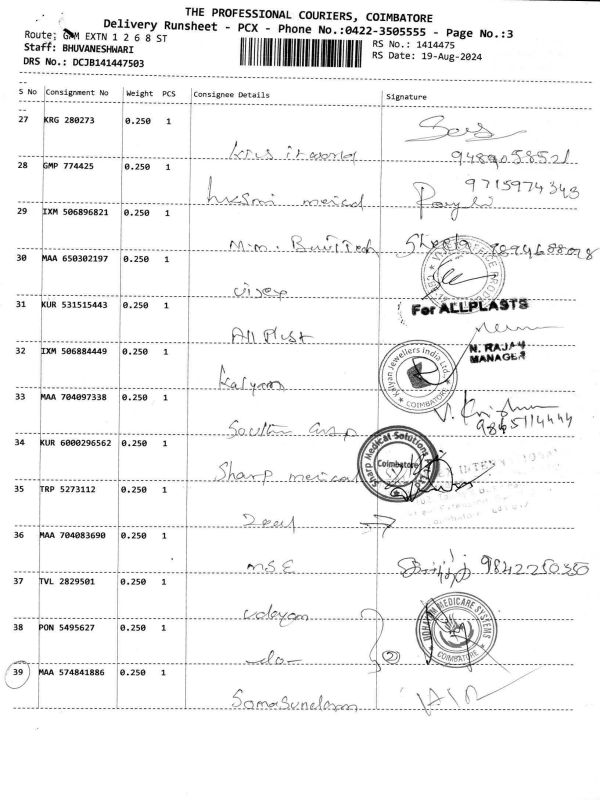 THE PROFESSIONAL COURIERS, COIMBATORE
Delivery Runsheet - PCX - Phone No.:0422-3505555 - Page No.:3
Route: EXTN 1 2 6 8 ST
Staff: BHUVANESHWARI
DRS No.: DCJB141447503
RS No.: 1414475
RS Date: 19-Aug-2024
S No Consignment No Weight PCS Consignee Details Signature
27 KRG 280273 0.250 1
9489058521
28 GMP 774425 0.250 1
9715974343
29 IXM 506896821 0.250 1
M.M.
30 MAA 650302197 0.250 1
31 KUR 531515443 0.250 1
For ALLPLASTS
All Plast
N. RAJAN
MANAGER
32 IXM 506884449 0.250 1
Kalyan Jewellers India Ltd.
COIMBATORE
Kalyan
33 MAA 704097338 0.250 1
V. Krishna
9865114444
34 KUR 6000296562 0.250 1
Sharp Medical Solutions Pvt Ltd
Coimbatore
Sharp medical
35 TRP 5273112 0.250 1
36 MAA 704083690 0.250 1
M.S.E
9842250350
37 TVL 2829501 0.250 1
Udayam
38 PON 5495627 0.250 1
UDHAYAM MEDICARE SYSTEMS
COIMBATORE
-do-
2
39 MAA 574841886 0.250 1
Somasundaram